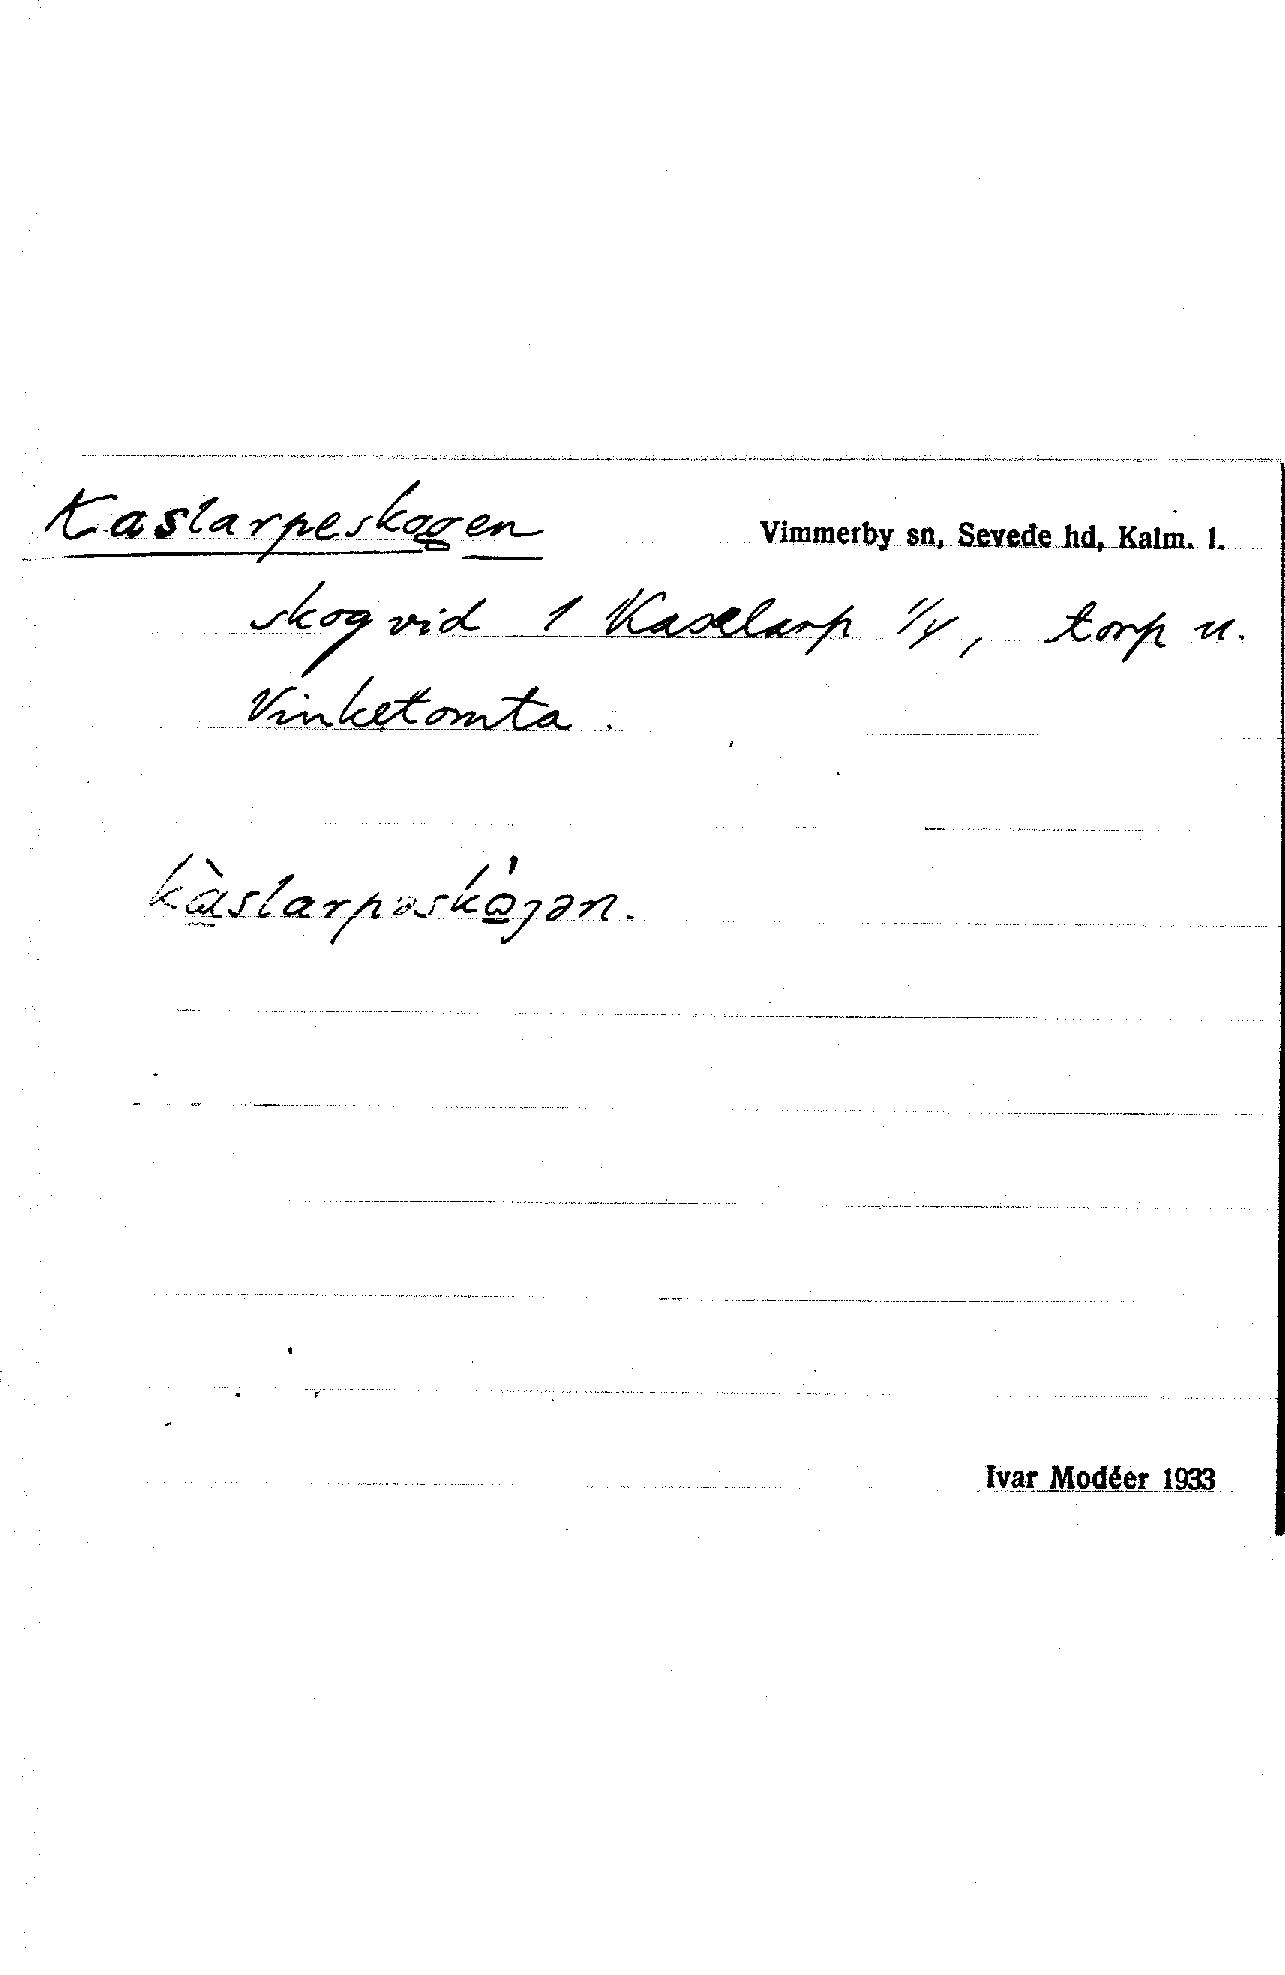 Kaslarpeskogen Vimmerby sn, Sevede hd, Kalm. l.
skog vid 1 Kaxelarp 1/4, torp u.
Vinketomta.
kàslarpəskó̱gən.
Ivar Modéer 1933